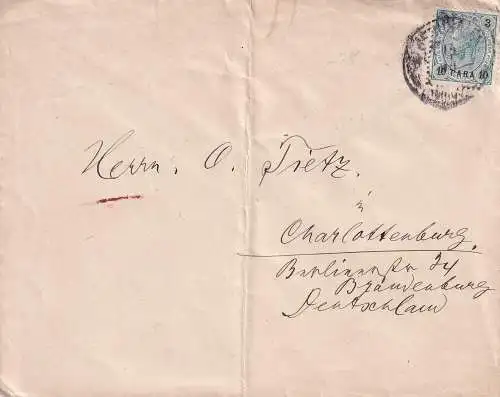 3
10 PARA 10
Herrn. O. Tietz.
in
Charlottenburg.
Berlinerstr 24
Brandenburg
Deutschland